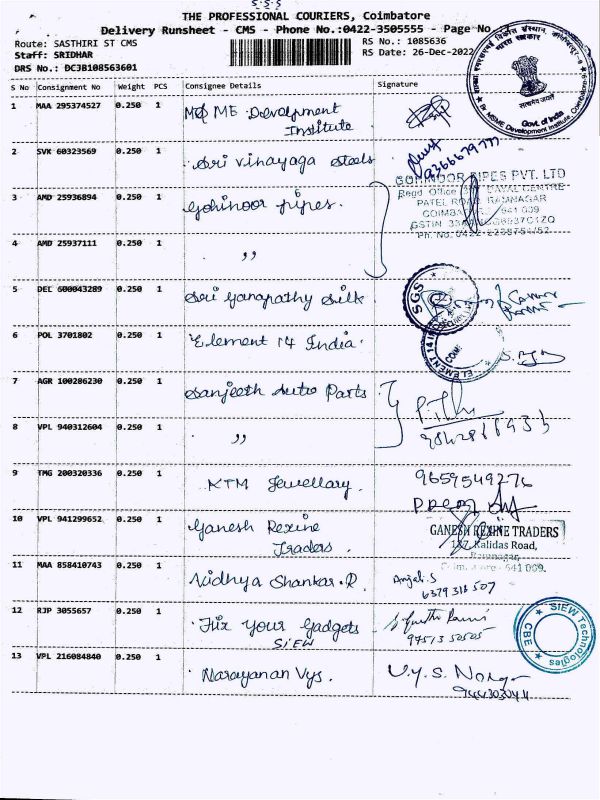 S-S-S
THE PROFESSIONAL COURIERS, Coimbatore
Delivery Runsheet - CMS - Phone No.:0422-3505555 - Page No
Route: SASTHIRI ST CMS
RS No.: 1085636
Staff: SRIDHAR
RS Date: 26-Dec-2022
DRS No.: DCJB108563601
S No Consignment No Weight PCS Consignee Details Signature
1 MAA 295374527 0.250 1 MSME Development
Institute
2 SVK 60323569 0.250 1 Sri Vinayaga Steels
9366679777
3 AMD 25936894 0.250 1 Gohinoor pipes.
GOHINOOR PIPES PVT. LTD
PATEL ROAD, RAMNAGAR
4 AMD 25937111 0.250 1 ,,
5 DEL 600043289 0.250 1 Sri Ganapathy Silk
SGS
6 POL 3701802 0.250 1 Element 14 India.
ELEMENT 14 INDIA
7 AGR 100286230 0.250 1 Sanjeeth Auto Parts
8 VPL 940312604 0.250 1 ,,
9 TMG 200320336 0.250 1 KTM Jewellary.
9659549276
10 VPL 941299652 0.250 1 Ganesh Rexine
Traders.
GANESH REXINE TRADERS
187, Kalidas Road,
Ramnagar,
Coimbatore - 641 009.
11 MAA 858410743 0.250 1 Vidhya Shankar.R
Anjali.S
6379318507
12 RJP 3055657 0.250 1 Fix Your Gadgets
SiEW
9751350505
SiEW Technologies
CBE
13 VPL 216084840 0.250 1 Narayanan Vys.
V.Y.S.
भारत सरकार
सत्यमेव जयते
Govt. of India
MSME Development Institute, Coimbatore-